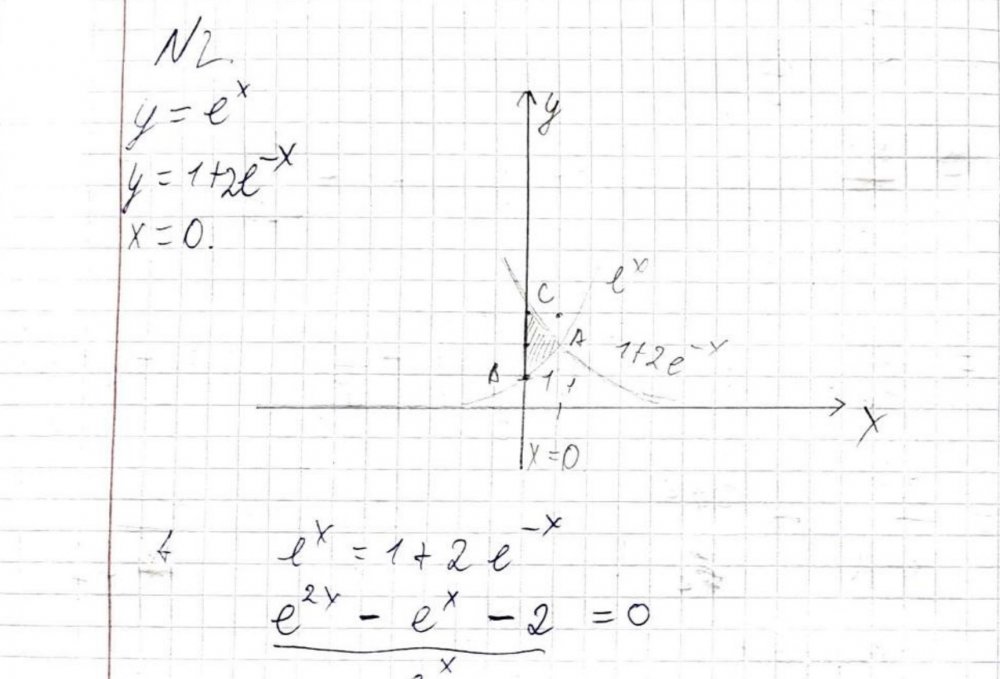 N2.
y = e^x
y = 1+2e^-x
x = 0.
y
C
e^x
A
1+2e^-x
1
1
x
x=0
e^x = 1+2e^-x
e^2x - e^x - 2 = 0
e^x